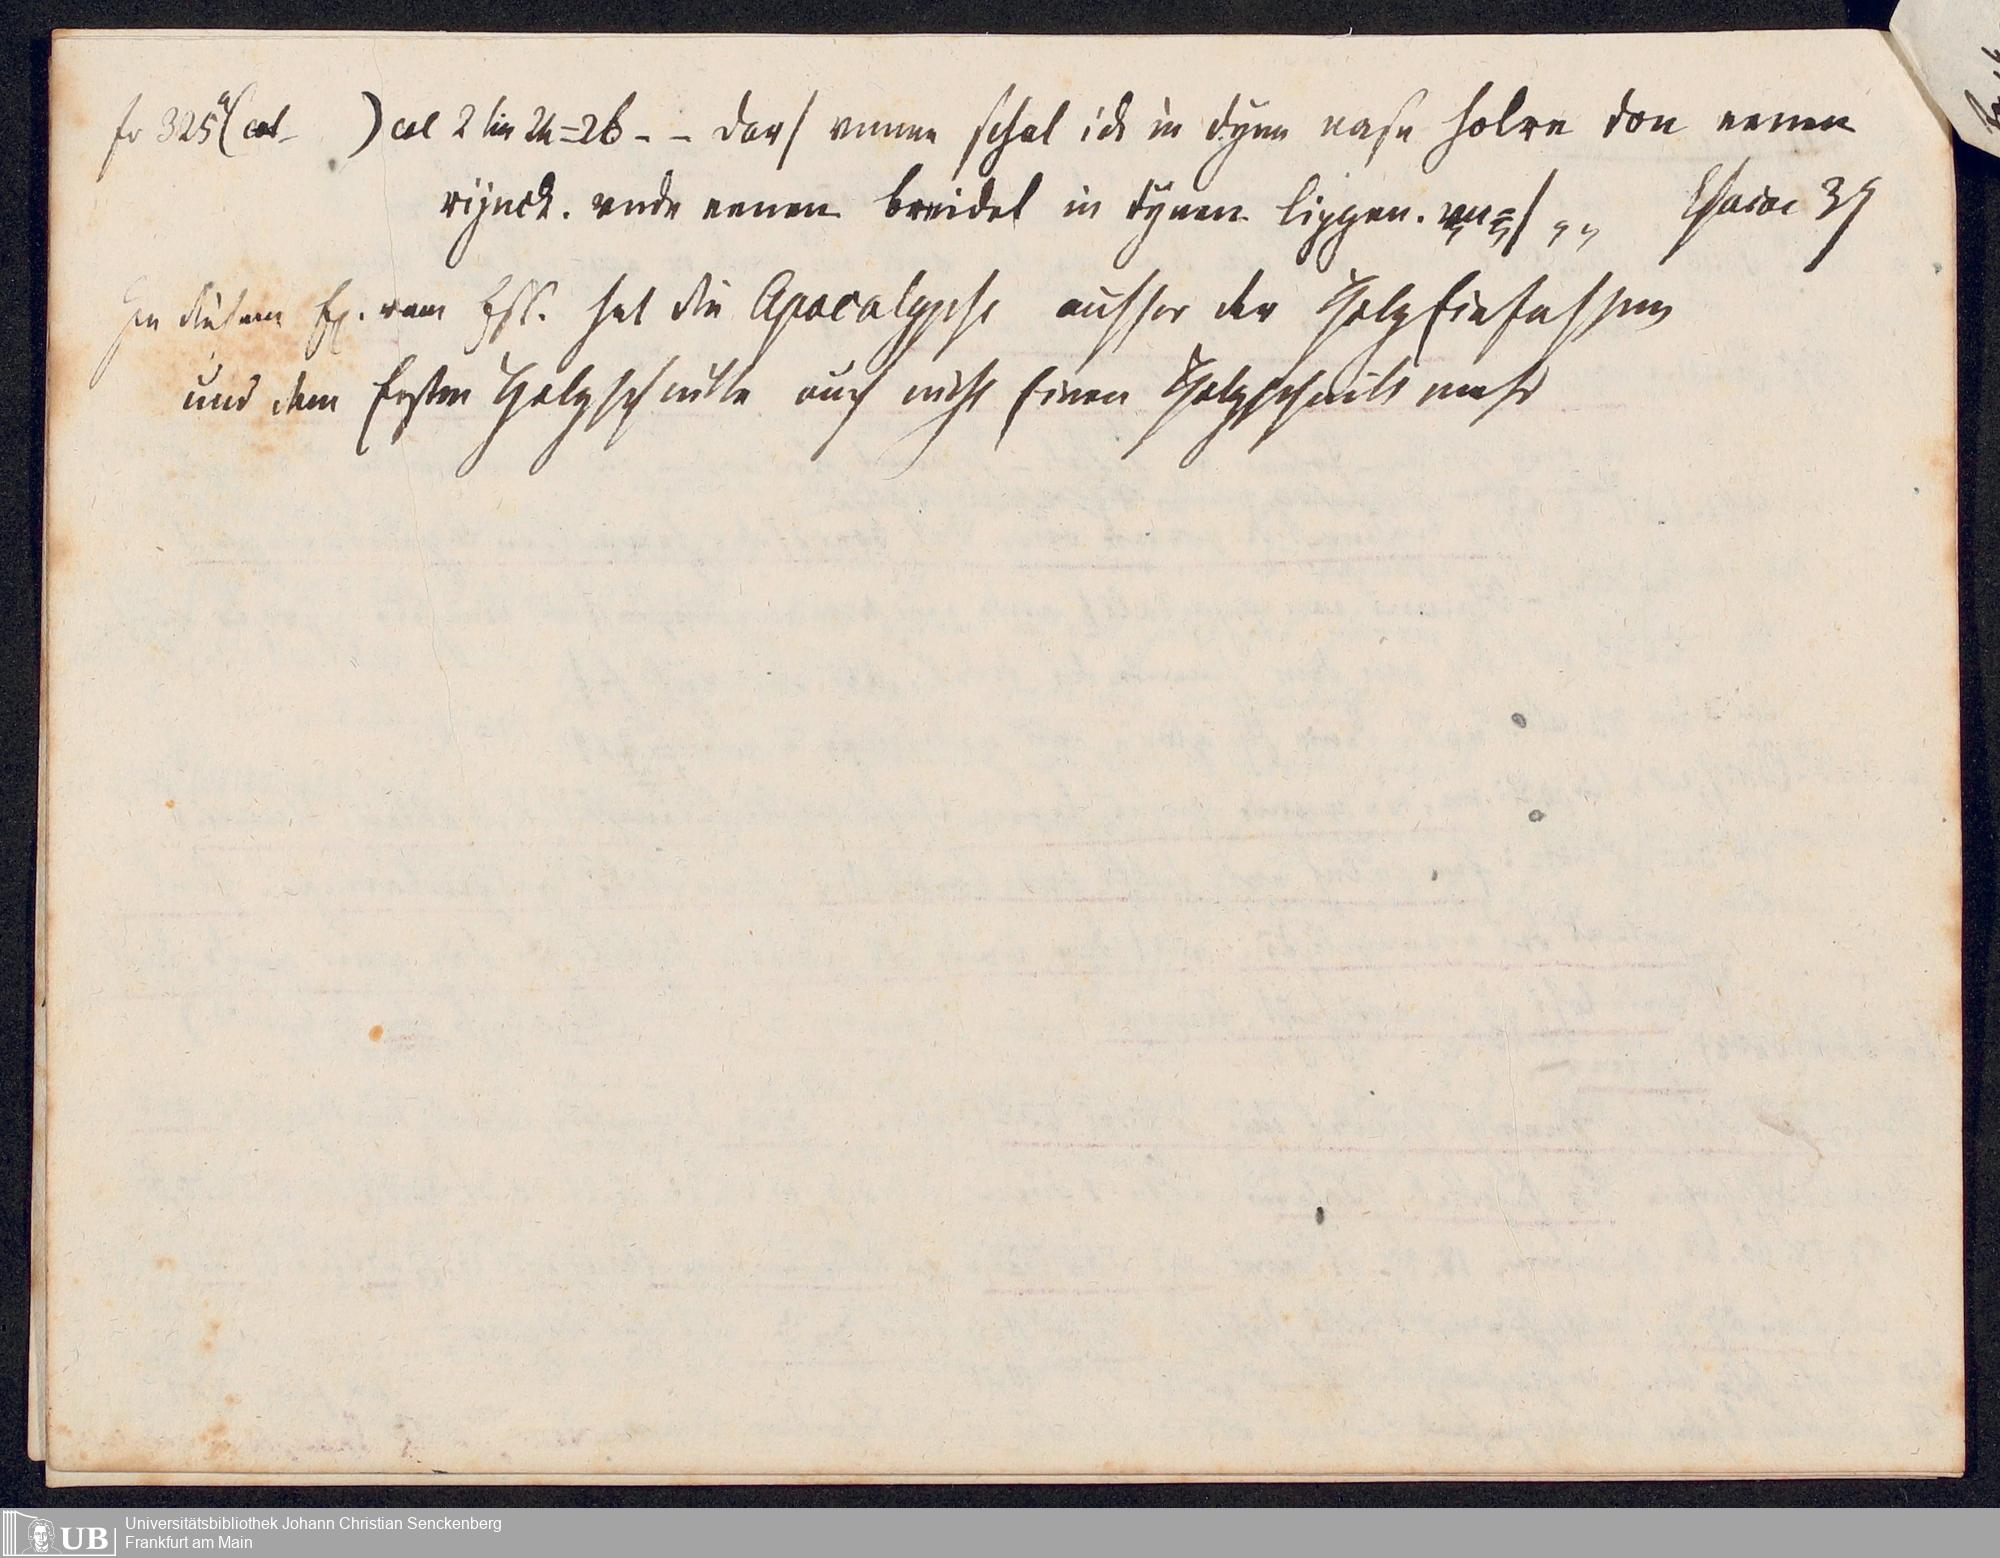 fo 325a (col ) col 2 lin 24=26 - - Dar/ vmme schal ick in dyne nase holre don eenen
rijnck. vnde eenen breidel in dynen lippen. vn=/ „ Esaiae 37
In diesem Ex. vom hss. hat die Apocalypse ausser der Holz Einfassung
und dem Ersten Holzschnitte auch nicht Einen Holzschnitt mehr
UB
Universitätsbibliothek Johann Christian Senckenberg
Frankfurt am Main